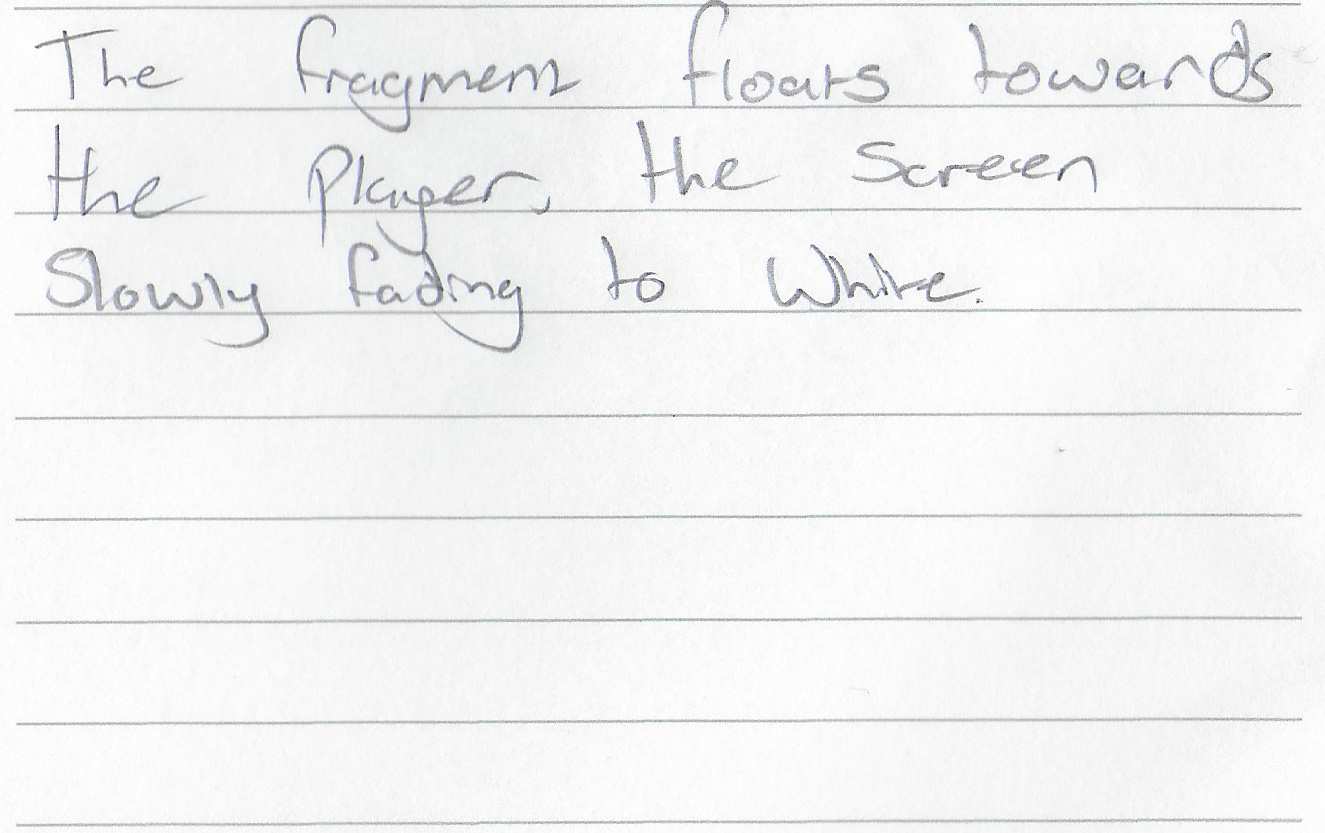 The fragment floats towards
the Player, the Screen
Slowly fading to White.